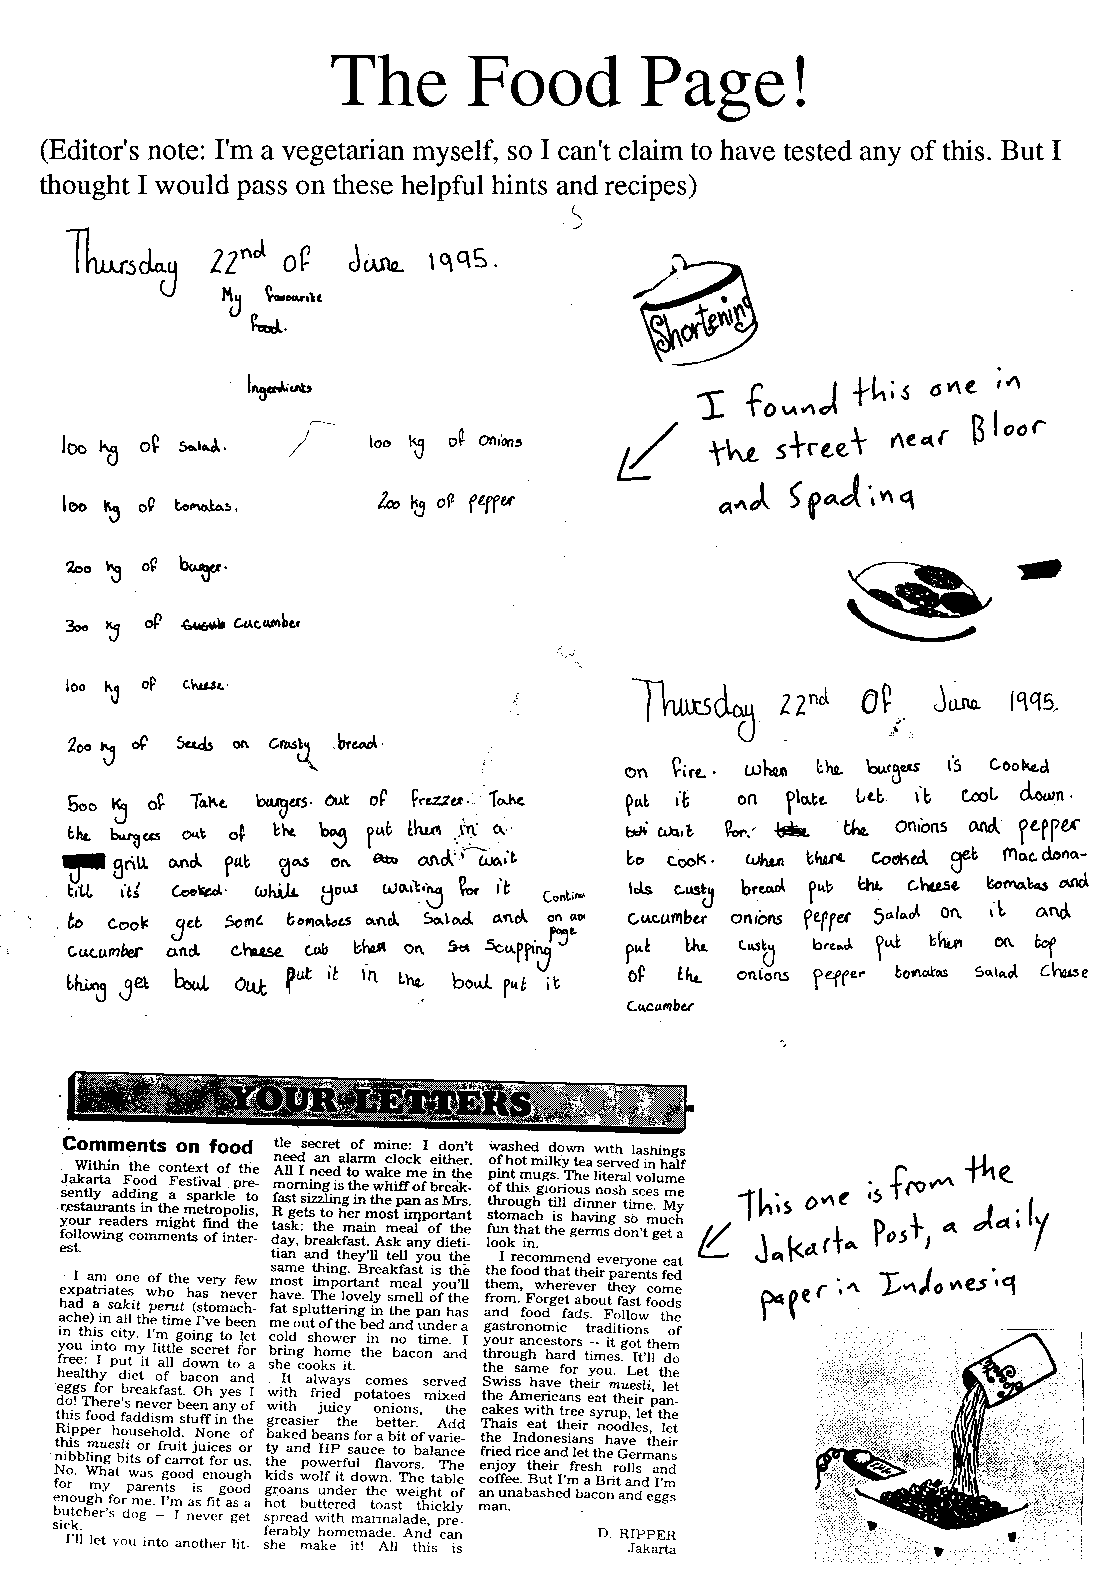 The Food Page!
(Editor's note: I'm a vegetarian myself, so I can't claim to have tested any of this. But I
thought I would pass on these helpful hints and recipes)
Thursday 22nd of June 1995.
My favourite
food.
Ingerdients
100 kg of salad.
100 kg of onions
100 kg of tomatas.
200 kg of pepper
200 kg of burger.
300 kg of Cucumber
100 kg of cheese.
200 kg of Seeds on Crasty bread.
500 kg of Take burgers. out of frezzer. Take
the burgers out of the bag put them in a
grill and put gas on and wait
till it's cooked. while yous waiting for it
to cook get some tomatoes and Salad and
cucumber and cheese cut then on Scupping
thing get boul out put it in the boul put it
Continu
on an
page
Shortening
I found this one in
the street near Bloor
and Spadina
Thursday 22nd Of June 1995.
on fire. when the burgers is cooked
put it on plate Let it cool down.
wait for. the onions and pepper
to cook. when there cooked get Macdona-
lds custy bread put the cheese tomatas and
cucumber onions pepper Salad on it and
put the custy bread put then on top
of the onions pepper tomatas Salad Cheese
Cucumber
YOUR LETTERS
Comments on food
Within the context of the
Jakarta Food Festival pre-
sently adding a sparkle to
restaurants in the metropolis,
your readers might find the
following comments of inter-
est.
I am one of the very few
expatriates who has never
had a sakit perut (stomach-
ache) in all the time I've been
in this city. I'm going to let
you into my little secret for
free: I put it all down to a
healthy diet of bacon and
eggs for breakfast. Oh yes I
do! There's never been any of
this food faddism stuff in the
Ripper household. None of
this muesli or fruit juices or
nibbling bits of carrot for us.
No. What was good enough
for my parents is good
enough for me. I'm as fit as a
butcher's dog — I never get
sick.
I'll let you into another lit-
tle secret of mine: I don't
need an alarm clock either.
All I need to wake me in the
morning is the whiff of break-
fast sizzling in the pan as Mrs.
R gets to her most important
task: the main meal of the
day, breakfast. Ask any dieti-
tian and they'll tell you the
same thing. Breakfast is the
most important meal you'll
have. The lovely smell of the
fat spluttering in the pan has
me out of the bed and under a
cold shower in no time. I
bring home the bacon and
she cooks it.
It always comes served
with fried potatoes mixed
with juicy onions, the
greasier the better. Add
baked beans for a bit of varie-
ty and HP sauce to balance
the powerful flavors. The
kids wolf it down. The table
groans under the weight of
hot buttered toast thickly
spread with marmalade, pre-
ferably homemade. And can
she make it! All this is
washed down with lashings
of hot milky tea served in half
pint mugs. The literal volume
of this glorious nosh sees me
through till dinner time. My
stomach is having so much
fun that the germs don't get a
look in.
I recommend everyone eat
the food that their parents fed
them, wherever they come
from. Forget about fast foods
and food fads. Follow the
gastronomic traditions of
your ancestors -- it got them
through hard times. It'll do
the same for you. Let the
Swiss have their muesli, let
the Americans eat their pan-
cakes with tree syrup, let the
Thais eat their noodles, let
the Indonesians have their
fried rice and let the Germans
enjoy their fresh rolls and
coffee. But I'm a Brit and I'm
an unabashed bacon and eggs
man.
D. RIPPER
Jakarta
This one is from the
Jakarta Post, a daily
paper in Indonesia